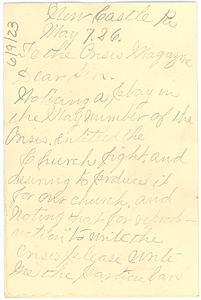 New Castle Pa
May 7.26.
6/9/23
To the Crisis Magazine
Dear Sir.
Noticing a play in
the May number of the
Crisis. entitled the
Church fight and
desiring to produce it
for our church. and
noting that for reprod-
uction "to write the
Crisis please write
me the particulars